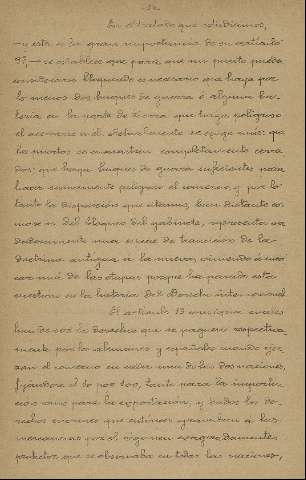 En el tratado que estudiamos,
—y esta es la gran importancia de su artículo
9º,— se establece que para que un punto pueda
considerarse bloqueado es necesario que haya por
lo menos dos buques de guerra ó alguna ba-
teria en la parte de tierra que haga peligroso
el acceso a él. Actualmente se exige más: que
los puertos se encuentren completamente cerra-
dos; que haya buques de guerra suficientes para
hacer sumamente peligroso el comercio; y por lo
tanto la disposición que citamos, bien distante co-
mo es del bloqueo del gabinete, representa ver-
daderamente una especie de transición de la
doctrina antigua a la nueva viniendo á mar-
car una de las etapas porque ha pasado esta
cuestion en la historia del Derecho internacional
El articulo 13 consigna
los derechos que se pagaran respectiva-
mente por los alemanes y españoles cuando ejer-
zan el comercio en cada una de las dos naciones,
fijandose el dos por 100, tanto para la importa-
cion como para la exportación, y todos los de-
rechos enormes que entonces gravaban a las
mercancias por el régimen exageradamente
protector que se observaba en todas las naciones,